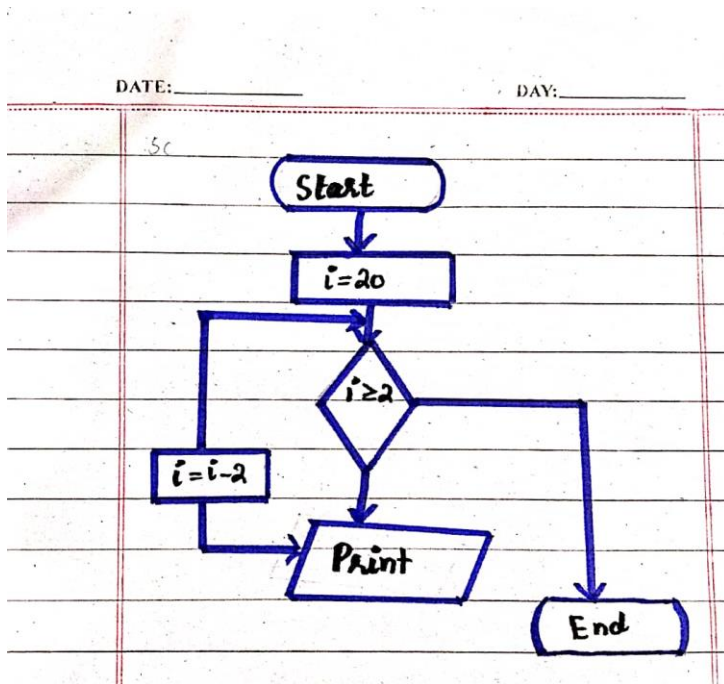 DATE:
DAY:
Sc
Start
i=20
i≥2
i=i-2
Print
End